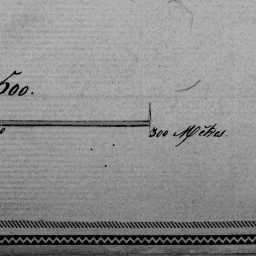 500.
0 300 Mètres.